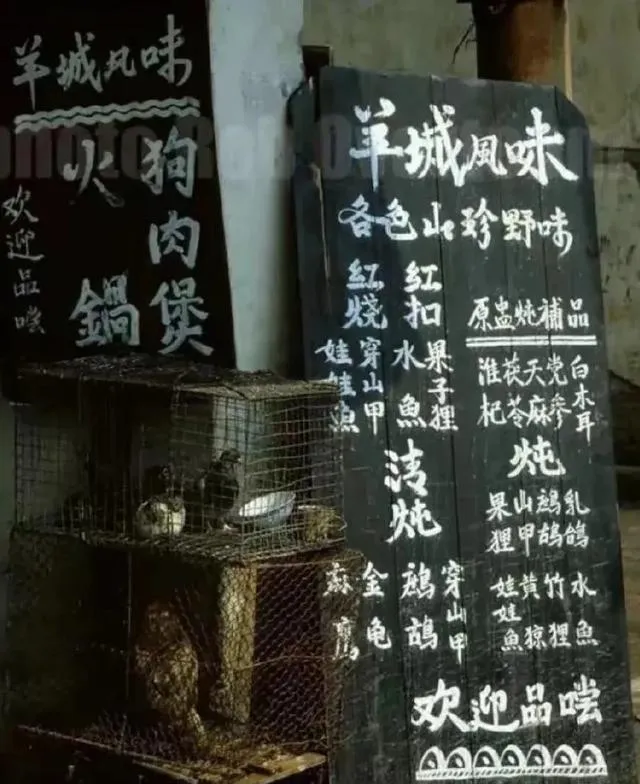 羊城风味
狗肉煲
火鍋
欢迎品嚐
羊城風味
各色山珍野味
紅扣
果子狸
水魚
紅烧
穿山甲
娃娃魚
原盅炖補品
白木耳
党参
天麻
茯苓
淮杞
清炖
穿山甲
鷓鴣
金龟
麻鹰
炖
乳鸽
鷓鴣
山甲
果狸
水魚
竹狸
黄猄
娃娃魚
欢迎品嚐